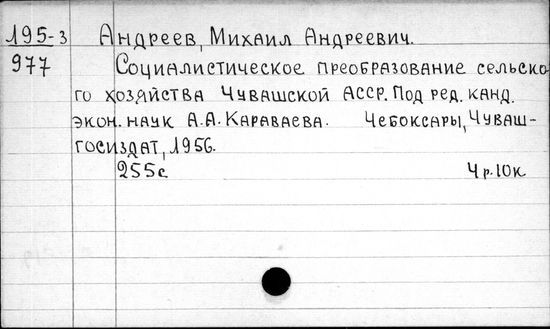 195-3 Андреев, Михаил Андреевич.
977 Социалистическое преобразование сельско-
го хозяйства Чувашской АССР. Под ред. канд.
экон. наук А.А. Караваева. Чебоксары, Чуваш-
госиздат, 1956.
255с. 4р.10к.